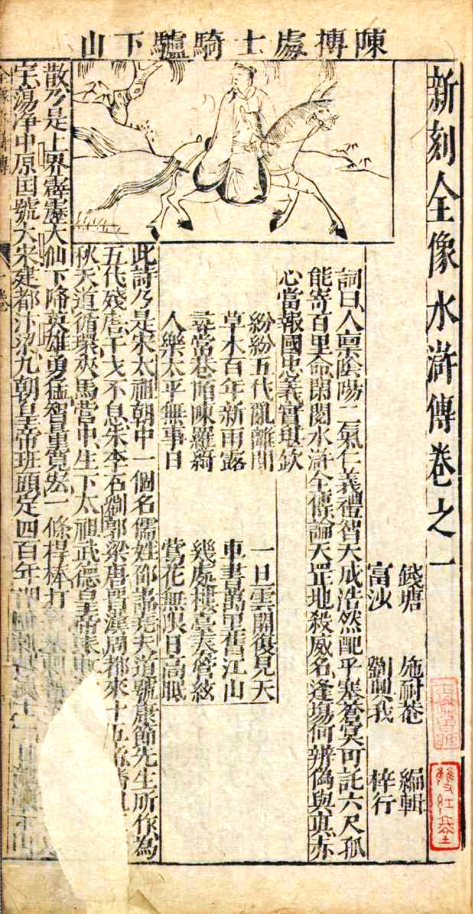 陳摶處士騎驢下山
新刻全像水滸傳卷之一
錢塘 施耐菴 編輯
富沙 劉興我 梓行
詞曰人禀陰陽二氣仁義禮智天成浩然配乎塞蒼冥可託六尺孤
能寄百里命閑閱水滸全傳論天罡地殺威名逢塲何辨偽與真赤
心當報國忠義實堪欽
紛紛五代亂離間 一旦雲開復見天
草木百年新雨露 車書萬里舊江山
尋常巷陌陳羅綺 幾處樓臺奏管絃
人樂太平無事日 鶯花無限日高眠
此詩乃是宋太祖朝中一個名儒姓邵諱堯夫道號康節先生所作為
五代殘唐干戈不息朱李石劉郭梁唐晋漢周都來十五帝
秋天道循環夾馬營中生下太祖武德皇帝
散乃是上界霹靂大仙下降英雄勇猛智量寬宏一條桿棒打
字蕩净中原囯號大宋建都汴梁九朝皇帝班頭定四百年
雙紅堂